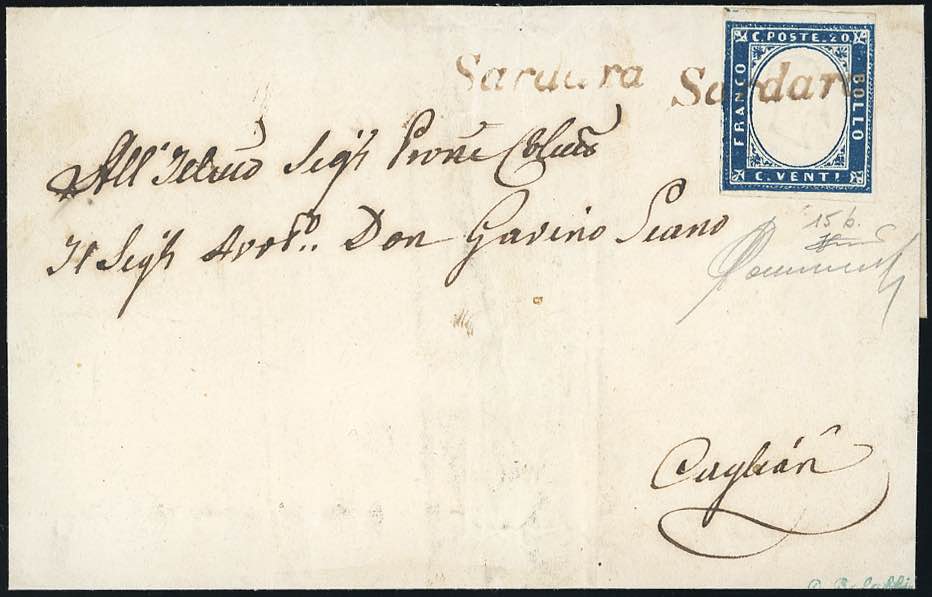 Sardara Sardara
C. POSTE. 20.
FRANCO
BOLLO
C. VENTI
All' Sigr Prone
Il Sigr Avvto. Don Gavino Scano
15 b.
Cagliari